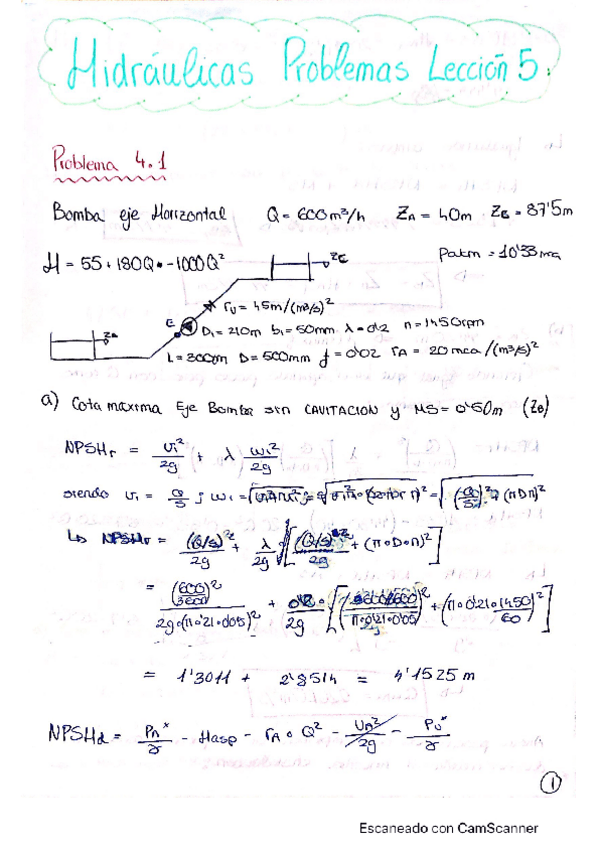 Hidráulicas Problemas Lección 5.
Problema 4.1
Bomba eje Horizontal   Q = 600 m³/h   ZA = 40m   ZC = 87'5m
H = 55 + 180Q - 1000Q²   Patm = 10'33 mca
rv = 45m/(m³/s)²
D1 = 210m   b1 = 50mm   λ = 0'2   n = 1450rpm
L = 300m   D = 500mm   f = 0'02   rA = 20 mca/(m³/s)²
a) Cota máxima Eje Bomba sin CAVITACION y MS = 0'50m (ZB)
NPSHr = v1²/2g + λ w1²/2g
siendo v1 = Q/S ; w1 = = √(Q/S)² + (πDn)²
↳ NPSHr = (Q/S)²/2g + λ/2g [(Q/S)² + (π·D·n)²]
= (600/3600)²/2g·(π·0'21·0'05)² + 0'2/2g + (π·0'21·1450/60)²]
= 1'3011 + 2'8514 = 4'1525 m
NPSHd = PA*/γ - Hasp - rA · Q² - VA²/2g - Pv*/γ
1
Escaneado con CamScanner